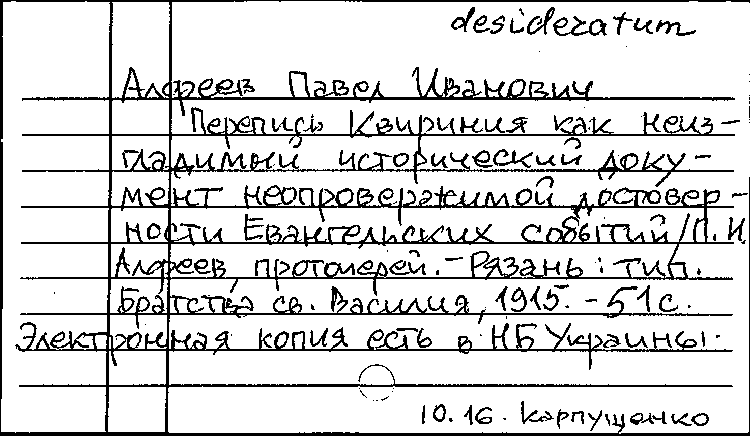 desideratum
Алфеев Павел Иванович
Перепись Квириния как неиз-
гладимый исторический доку-
мент неопровержимой достовер-
ности Евангельских событий / П. И.
Алфеев, протоиерей. - Рязань : тип.
Братства св. Василия, 1915. - 51 с.
Электронная копия есть в НБ Украины.
10.16. Карпущенко